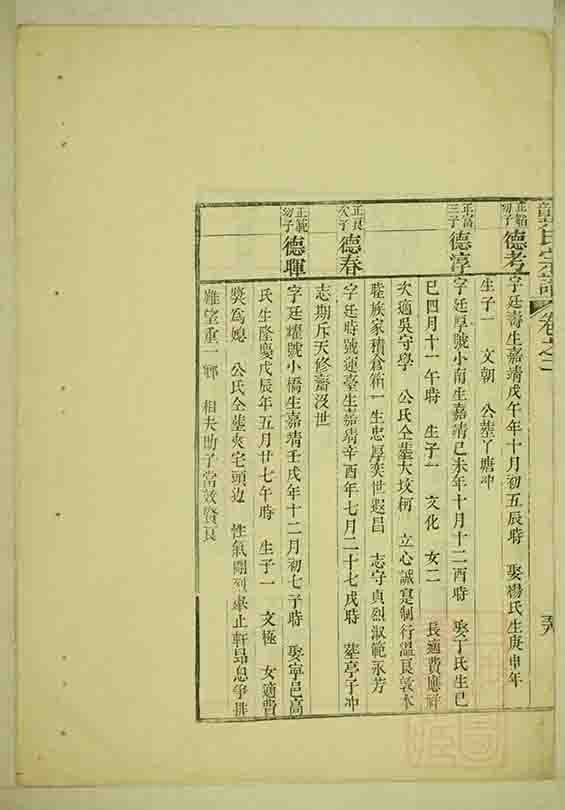 氏宗譜 卷之二
正 幼子 德考 字廷壽生嘉靖戊午年十月初五辰時 娶楊氏生庚申年
生子一 文朝 公塟丫塘冲
正富三子 德淳 字廷厚號小南生嘉靖己未年十月十二酉時 娶丁氏生己
巳四月十一午時 生子一 文化 女二 長適費應祥
次適吳守學 公氏仝塟大坟 立心誠寔制行溫良敦本
睦族家積倉箱一生忠厚奕世遐昌 志守貞烈淑範永芳
正良次子 德春 字廷時號運臺生嘉靖辛酉年七月二十七戌時 塟亭子冲
志期斥天修齋沒世
正範幼子 德暉 字廷耀號小橋生嘉靖壬戌年十二月初七子時 娶寧邑高
氏生隆慶戊辰年五月廿七午時 生子一 文極 女適費
獎為媳 公氏仝塟夾宅頭边 性氣剛烈舉止軒昂息爭排
難望重一鄉 相夫助子當效賢良